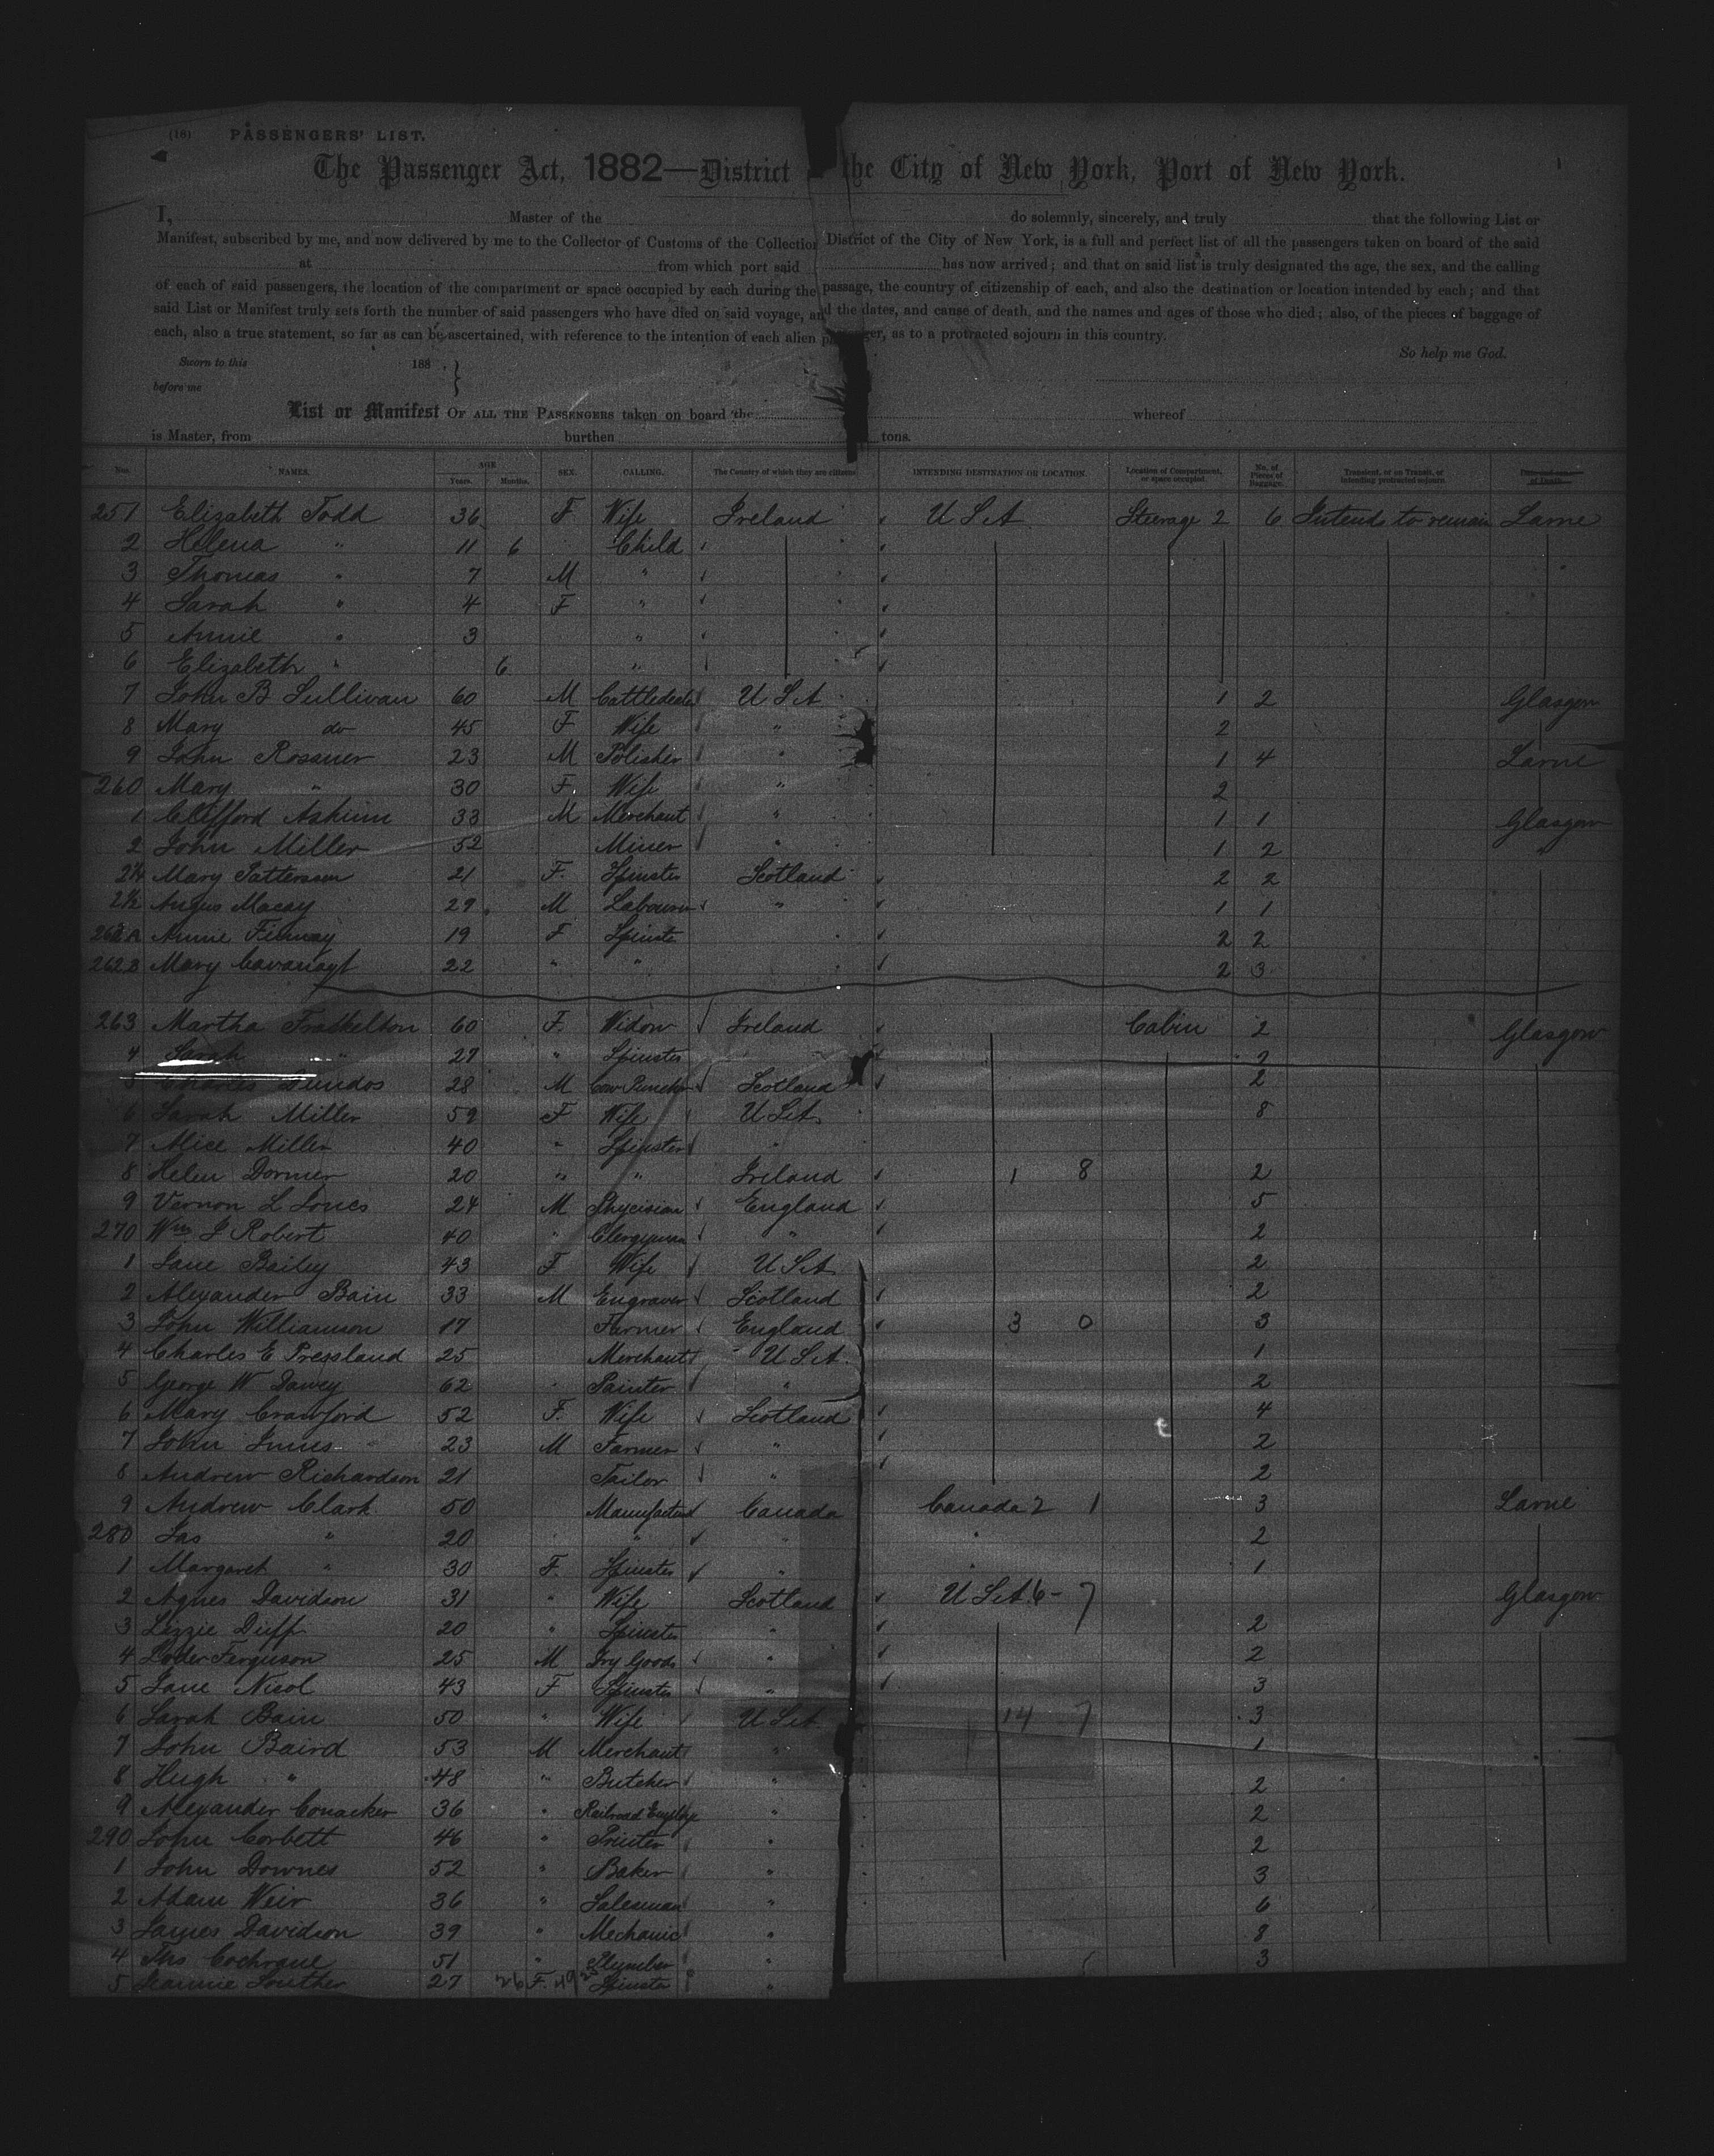 (18) PASSENGERS' LIST.
The Passenger Act, 1882—District the City of New York, Port of New York.
I, Master of the do solemnly, sincerely, and truly that the following List or
Manifest, subscribed by me, and now delivered by me to the Collector of Customs of the Collection District of the City of New York, is a full and perfect list of all the passengers taken on board of the said
at from which port said has now arrived; and that on said list is truly designated the age, the sex, and the calling
of each of said passengers, the location of the compartment or space occupied by each during the passage, the country of citizenship of each, and also the destination or location intended by each; and that
said List or Manifest truly sets forth the number of said passengers who have died on said voyage, and the dates, and cause of death, and the names and ages of those who died; also, of the pieces of baggage of
each, also a true statement, so far as can be ascertained, with reference to the intention of each alien passenger, as to a protracted sojourn in this country.
Sworn to this 188 . So help me God.
before me
List or Manifest OF ALL THE PASSENGERS taken on board the whereof
is Master, from burthen tons.
No. NAMES. AGE Years. Months. SEX. CALLING. The Country of which they are citizens INTENDING DESTINATION OR LOCATION. Location of Compartment, or space occupied No. of Pieces of Baggage. Transient, or on Transit, or intending protracted sojourn.
251 Elizabeth Todd 36 F Wife Ireland U S A Steerage 2 6 Intends to remain Larne
2 Helena " 11 6 Child
3 Thomas " 7 M "
4 Sarah " 4 F "
5 Annie " 3 "
6 Elizabeth " 6 "
7 John B Sullivan 60 M Cattledealer U S A 1 2 Glasgow
8 Mary do 45 F Wife " 2
9 John Rossner 23 M Polisher " 1 4 Larne
260 Mary " 30 F. Wife " 2
1 Clifford Askum 33 M Merchant " 1 1 Glasgow
2 John Miller 52 Miner " 1 2 "
2¼ Mary Patterson 21 F. Spinster Scotland 2 2
2½ Angus Macay 29 M Labourer " 1 1
262A Annie Finnay 19 F Spinster 2 2
262B Mary Cavanagh 22 " " 2 3
263 Martha Frackelton 60 F. Widow Ireland Cabin 2 Glasgow
4 Sarah " 27 " Spinster 2
5 Charles Dundos 28 M Cow Puncher Scotland 2
6 Sarah Miller 59 F Wife U S A 8
7 Alice Miller 40 " Spinster "
8 Helen Dormer 20 " " Ireland 1 8 2
9 Vernon L Jones 24 M Phycisian England 5
270 Wm J Robert 40 " Clergyman " 2
1 Jane Bailey 43 F Wife U S A 2
2 Alexander Bain 33 M Engraver Scotland 2
3 John Williamson 17 Farmer England 3 0 3
4 Charles E Pressland 25 Merchant U S A 1
5 George W Dawey 62 Painter " 2
6 Mary Crawford 52 F. Wife Scotland 4
7 John Innes 23 M Farmer " 2
8 Andrew Richardson 21 Tailor " 2
9 Andrew Clark 50 Manufacturer Canada Canada 2 1 3 Larne
280 Jas " 20 " " " 2
1 Margaret " 30 F. Spinster " " 1
2 Agnes Davidson 31 " Wife Scotland U S A 6 - 7 Glasgow
3 Lizzie Duff 20 " Spinster " 2
4 Ferguson 25 M Dry Goods " 2
5 Jane Nicol 43 F Spinster " 3
6 Sarah Bain 50 " Wife U S A 14 7 3
7 John Baird 53 M Merchant " 1
8 Hugh " 48 " Butcher " 2
9 Alexander Conacher 36 " Railroad Employe " 2
290 John Corbett 46 " Printer " 2
1 John Downes 52 " Baker " 3
2 Adam Weir 36 " Salesman " 6
3 James Davidson 39 " Mechanic " 8
4 Thos Cochrane 51 " Plumber 3
5 Jeannie Souther 27 26 F. 49 Spinster "